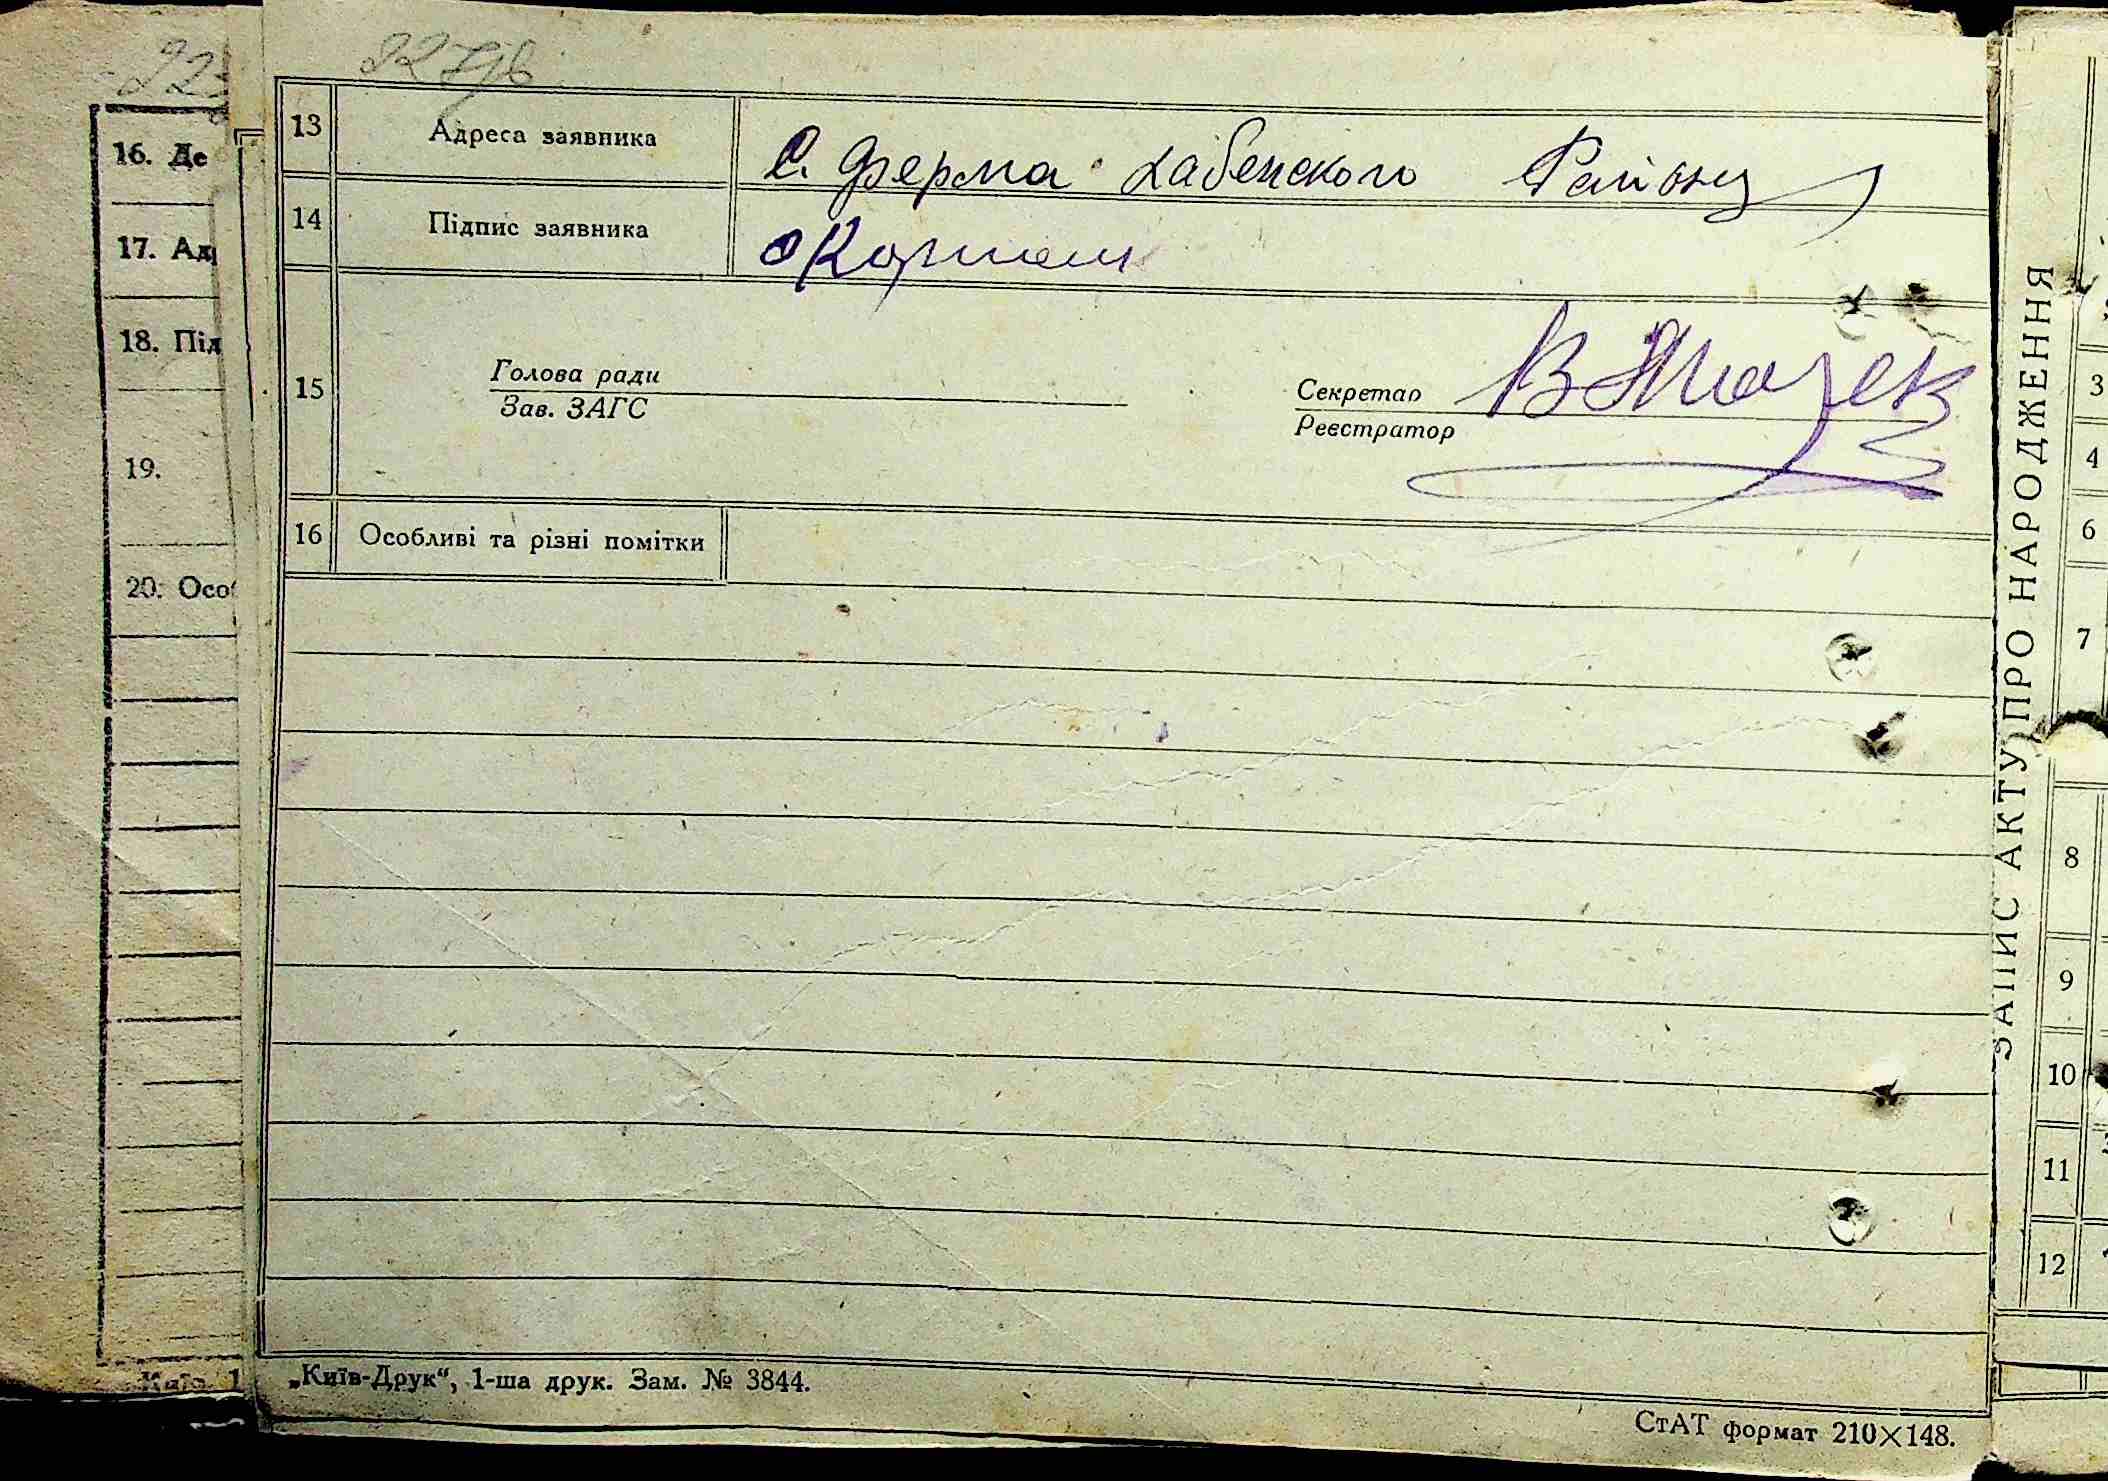 13 Адреса заявника С. Ферма Хабенского Району
14 Підпис заявника
15 Голова ради
Зав. ЗАГС
Секретар
Реєстратор
16 Особливі та різні помітки
„Київ-Друк“, 1-ша друк. Зам. № 3844.
СтАТ формат 210×148.
16. Де
17. Ад
18. Під
19.
20. Особ
ЗАПИС АКТУ ПРО НАРОДЖЕННЯ
3
4
6
7
8
9
10
11
12